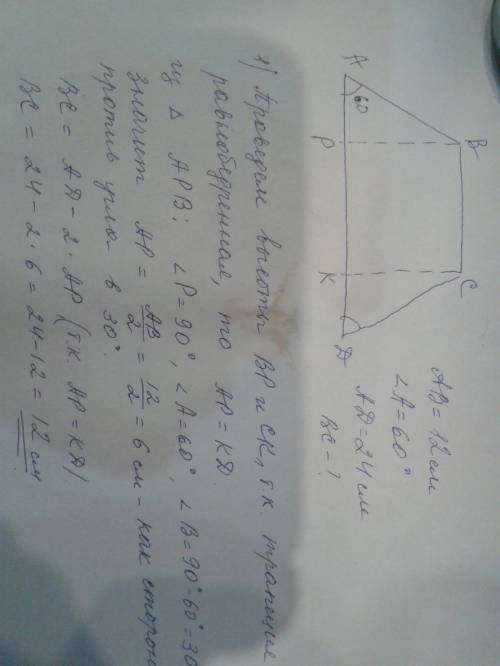 B
C
A
60
P
K
D
AB = 12 см
∠A = 60°
AD = 24 см
BC - ?
1) Проведем высоты BP и CK, т.к. трапеция
равнобедренная, то AP = KD.
Из △ APB: ∠P = 90°, ∠A = 60°, ∠B = 90° - 60° = 30
Значит AP = AB/2 = 12/2 = 6 см - как сторон
против угла в 30°.
BC = AD - 2·AP (т.к. AP = KD)
BC = 24 - 2·6 = 24 - 12 = 12 см